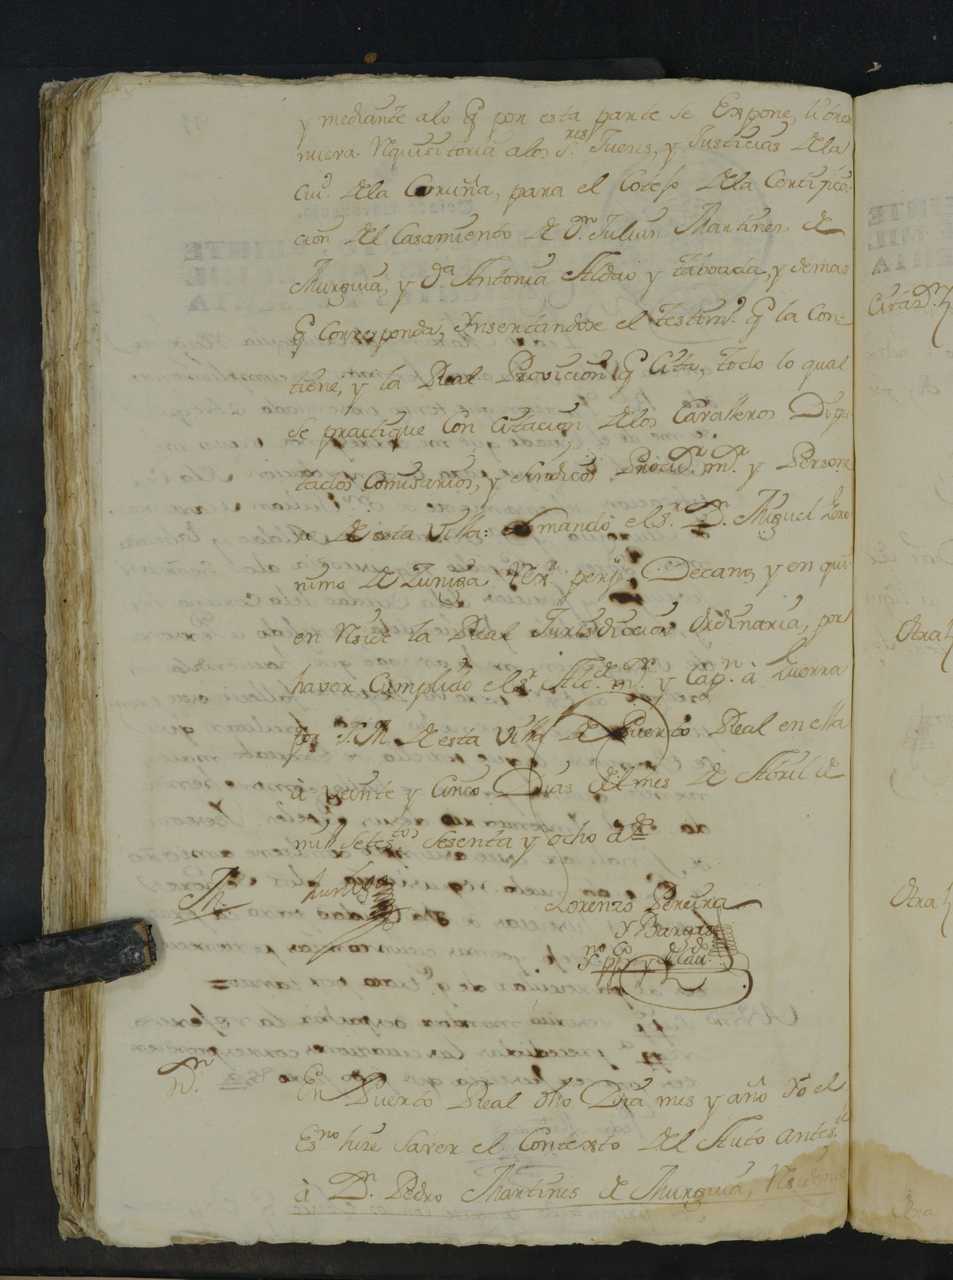 y mediante alo q por esta parte se Expone, libres
nueva Requicitoria alos Sres Jueces, y Justicias dela
Ciud dela Coruña, para el Cotejo dela Certifica-
cion del Casamiento de Dn Julian Martines de
Murguia, y Da Antonia Aldao y taboada, y demas
q Corresponda, Ynsertandose el testimo q la Con-
tiene, y la Real Provicion q Cita, todo lo qual
se practique Con Citacion delos Cavalleros Dipu-
tados Comisarios, y Sindicos Procur mr y Perzone
ro de esta Villa: lo mando el Sr Dn Miguel Gero
nimo de Zuniga Rexr perpo Decano, y en quien
en Recide la Real Jurisdiccion Ordinaria, por
haver Cumplido el Sr Alcde mr y Capn à Guerra
por S.M. de esta Villa de Puerto Real en ella
à veinte y Cinco Dias del mes de Abril de
mill Setestos Sesenta y ocho as
Lorenzo Pereira
y Bargas
Sno ppco y de Cavdo
Rn
En Puerto Real dho Dia mes y año Yo el
Esno hise Saver el Contexto del Auto antesede
à Dn Pedro Martines de Murguia, Reside
Citazn
Otra
Otra